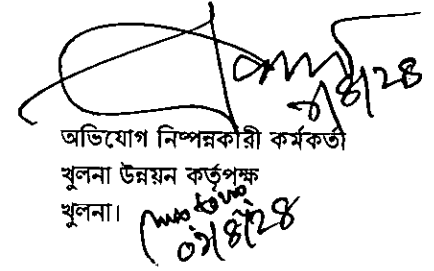 ৭/৪/২৪
অভিযোগ নিষ্পন্নকারী কর্মকর্তা
খুলনা উন্নয়ন কর্তৃপক্ষ
খুলনা।
০৭/৪/২৪